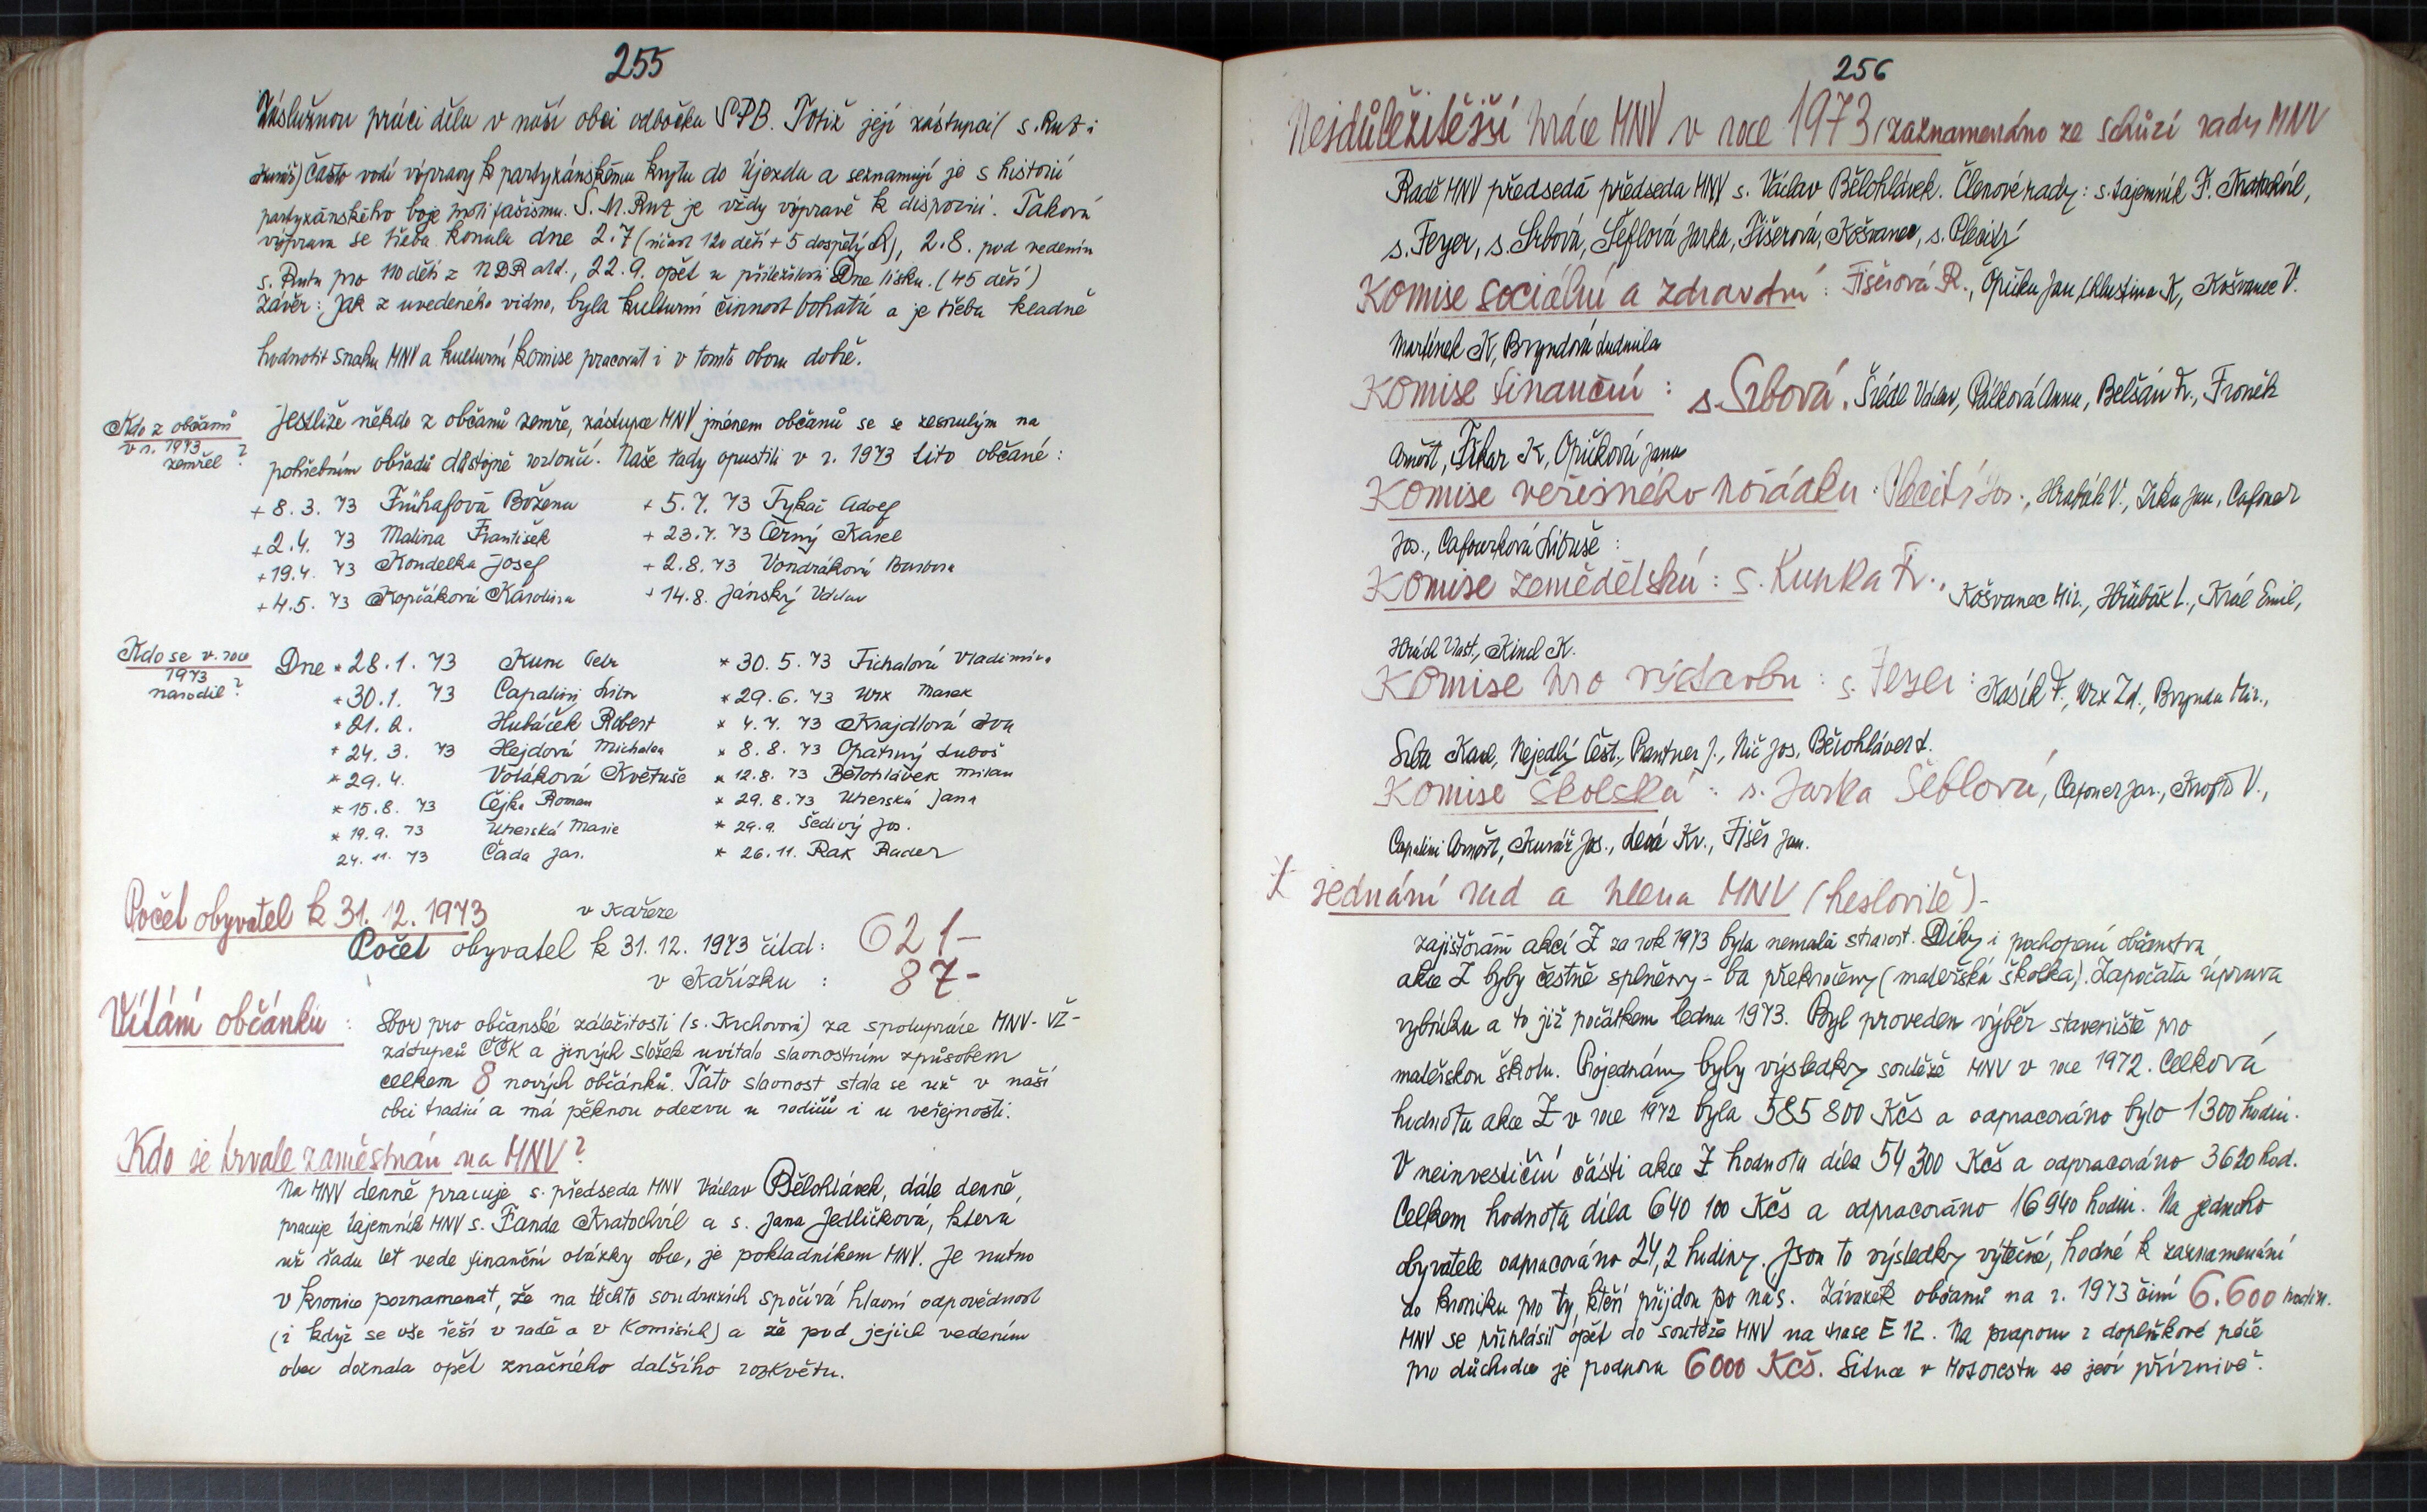 255
Záslužnou práci dělá v naší obci odbočka SPB. Totiž její zástupci (s. Rut i
Kunáš) často vodí výpravy k partyzánskému krytu do Újezda a seznamují je s historií
partyzánského boje proti fašismu. S. M. Rut je vždy výpravě k disposici. Taková
výprava se třeba konala dne 2.7 (účast 120 dětí + 5 dospělých), 2.8. pod vedením
s. Ruta pro 110 dětí z NDR atd., 22.9. opět u příležitosti Dne tisku. (45 dětí)
Závěr: Jak z uvedeného vidno, byla kulturní činnost bohatá a je třeba kladně
hodnotit snahu MNV a kulturní komise pracovat i v tomto oboru dobře.
Kdo z občanů
v r. 1973
zemřel?
Jestliže někdo z občanů zemře, zástupce MNV jménem občanů se se zesnulým na
pohřebním obřadů důstojně rozloučí. Naše řady opustili v r. 1973 tito občané:
+ 8. 3. 73 Frühafová Božena + 5. 7. 73 Tykač Adolf
+ 2.4. 73 Malina František + 23.7. 73 Černý Karel
+ 19.4. 73 Kondelka Josef + 2.8. 73 Vondráková Barbora
+ 4.5. 73 Kopčáková Karolina + 14.8. Jánský Václav
Kdo se v. roce
1973
narodil?
Dne * 28.1. 73 Kunc Petr * 30. 5. 73 Fichalová Vladimíra
* 30.1. 73 Capalini Libor * 29. 6. 73 Urx Marek
* 21. 2. Hubáček Robert * 4. 7. 73 Krajdlová Iva
* 24. 3. 73 Hejdová Michala * 8. 8. 73 Opatrný Luboš
* 29. 4. Voláková Květuše * 12.8. 73 Bělohlávek Milan
* 15. 8. 73 Čejka Roman * 29. 8. 73 Uherská Jana
* 19. 9. 73 Uherská Marie * 29.9. Šedivý Jos.
24. 11. 73 Čada Jar. * 26. 11. Rak Radek
Počet obyvatel k 31. 12. 1973
v Kařeze
Počet obyvatel k 31. 12. 1973 čítal: 621-
v Kařízku : 87-
Vítání občánků : Sbor pro občanské záležitosti (s. Krchovová) za spolupráce MNV-VŽ-
zástupců ČČK a jiných složek uvítalo slavnostním způsobem
celkem 8 nových občánků. Tato slavnost stala se už v naší
obci tradicí a má pěknou odezvu u rodičů i u veřejnosti.
Kdo je trvale zaměstnán na MNV?
Na MNV denně pracuje s. předseda MNV Václav Bělohlávek, dále denně,
pracuje tajemník MNV s. Fanda Kratochvíl a s. Jana Jedličková, která
už řadu let vede finanční otázky obce, je pokladníkem MNV. Je nutno
v kronice poznamenat, že na těchto soudruzích spočívá hlavní odpovědnost
(i když se vše řeší v radě a v komisích) a že pod jejich vedením
obec doznala opět značného dalšího rozkvětu.
256
Nejdůležitější práce MNV v roce 1973 (zaznamenáno ze schůzí rady MNV
Radě MNV předsedá předseda MNV s. Václav Bělohlávek. Členové rady: s. tajemník F. Kratochvíl,
s. Feyer, s. Srbová, Šeflová Jarka, Fišerová, Košvanec, s. Plecitý
Komise sociální a zdravotní : Fišerová R., Opička Jan, Chlustina K, Košvanec V.
Martínek K, Bryndová Ludmila
Komise finanční : s. Srbová, Šrédl Václav, Pálková Anna, Belšán Fr., Froněk
Arnošt, Fikar K, Opičková Jana
Komise veřejného pořádku : Plecitý Jos., Hrabák V., Jirka Jan, Cafourek
Jos., Cafourková Libuše :
Komise zemědělská : s. Kunka Fr., Košvanec Mir., Hrabák L., Král Emil,
Hrách Vlast., Kindl K.
Komise pro výstavbu : s. Feyer : Kasík F., Urx Zd., Brynda Mir.,
Srba Karel, Nejedlý Čest., Plantner J., Nič Jos, Bělohlávek V.
Komise školská : s. Jarka Šeflová, Cafourek Jar., Kroft V.,
Capalini Arnošt, Kunáš Jos., Levá Kv., Fišer Jan.
Z jednání rad a plena MNV (heslovitě)-
zajišťování akcí Z za rok 1973 byla nemalá starost. Díky i pochopení občanstva
akce Z byly čestně splněny - ba překročeny (mateřská školka). Započala úprava
rybníka a to již počátkem ledna 1973. Byl proveden výběr staveniště pro
mateřskou školu. Projednány byly výsledky soutěže MNV v roce 1972. Celková
hodnota akce Z v roce 1972 byla 585 800 Kčs a odpracováno bylo 1300 hodin.
V neinvestiční části akce Z hodnota díla 54 300 Kčs a odpracováno 3620 hod.
Celkem hodnota díla 640 100 Kčs a odpracováno 16 940 hodin. Na jednoho
obyvatele odpracováno 24,2 hodiny. Jsou to výsledky výtečné, hodné k zaznamenání
do kroniky pro ty, kteří přijdou po nás. Závazek občanů na r. 1973 činí 6.600 hodin.
MNV se přihlásil opět do soutěže MNV na trase E 12. Na z doplňkové péče
pro důchodce je podpora 6000 Kčs. Situace v Motorestu se jeví příznivě.